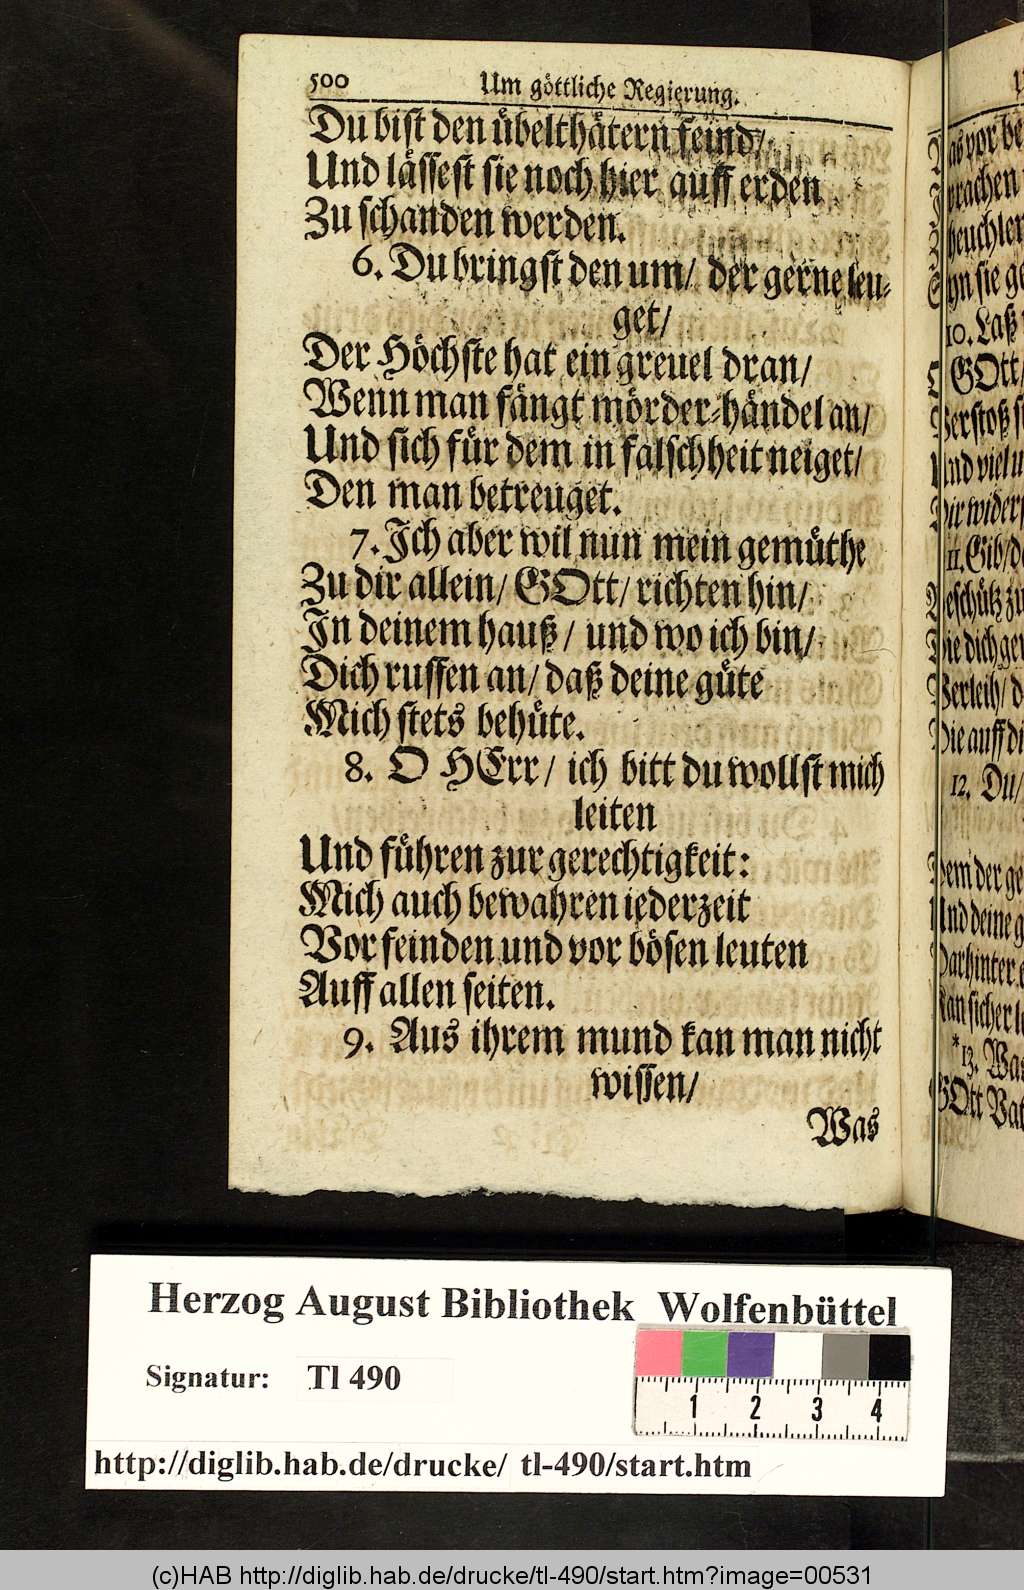 500 Um göttliche Regierung.
Du bist den übelthätern feind/
Und lässest sie noch hier auff erden
Zu schanden werden.
6. Du bringst den um/ der gerne leu-
get/
Der Höchste hat ein greuel dran/
Wenn man fängt mörder-händel an/
Und sich für dem in falschheit neiget/
Den man betreuget.
7. Ich aber wil nun mein gemüthe
Zu dir allein/ GOtt/ richten hin/
In deinem hauß/ und wo ich bin/
Dich ruffen an/ daß deine güte
Mich stets behüte.
8. O HErr/ ich bitt du wollst mich
leiten
Und führen zur gerechtigkeit:
Mich auch bewahren iederzeit
Vor feinden und vor bösen leuten
Auff allen seiten.
9. Aus ihrem mund kan man nicht
wissen/
Was
10. Laß
GOtt/
11. Gib/
12. Du/
*13. Was
GOtt Vat
Herzog August Bibliothek Wolfenbüttel
Signatur: Tl 490
1 2 3 4
http://diglib.hab.de/drucke/ tl-490/start.htm
(c)HAB http://diglib.hab.de/drucke/tl-490/start.htm?image=00531